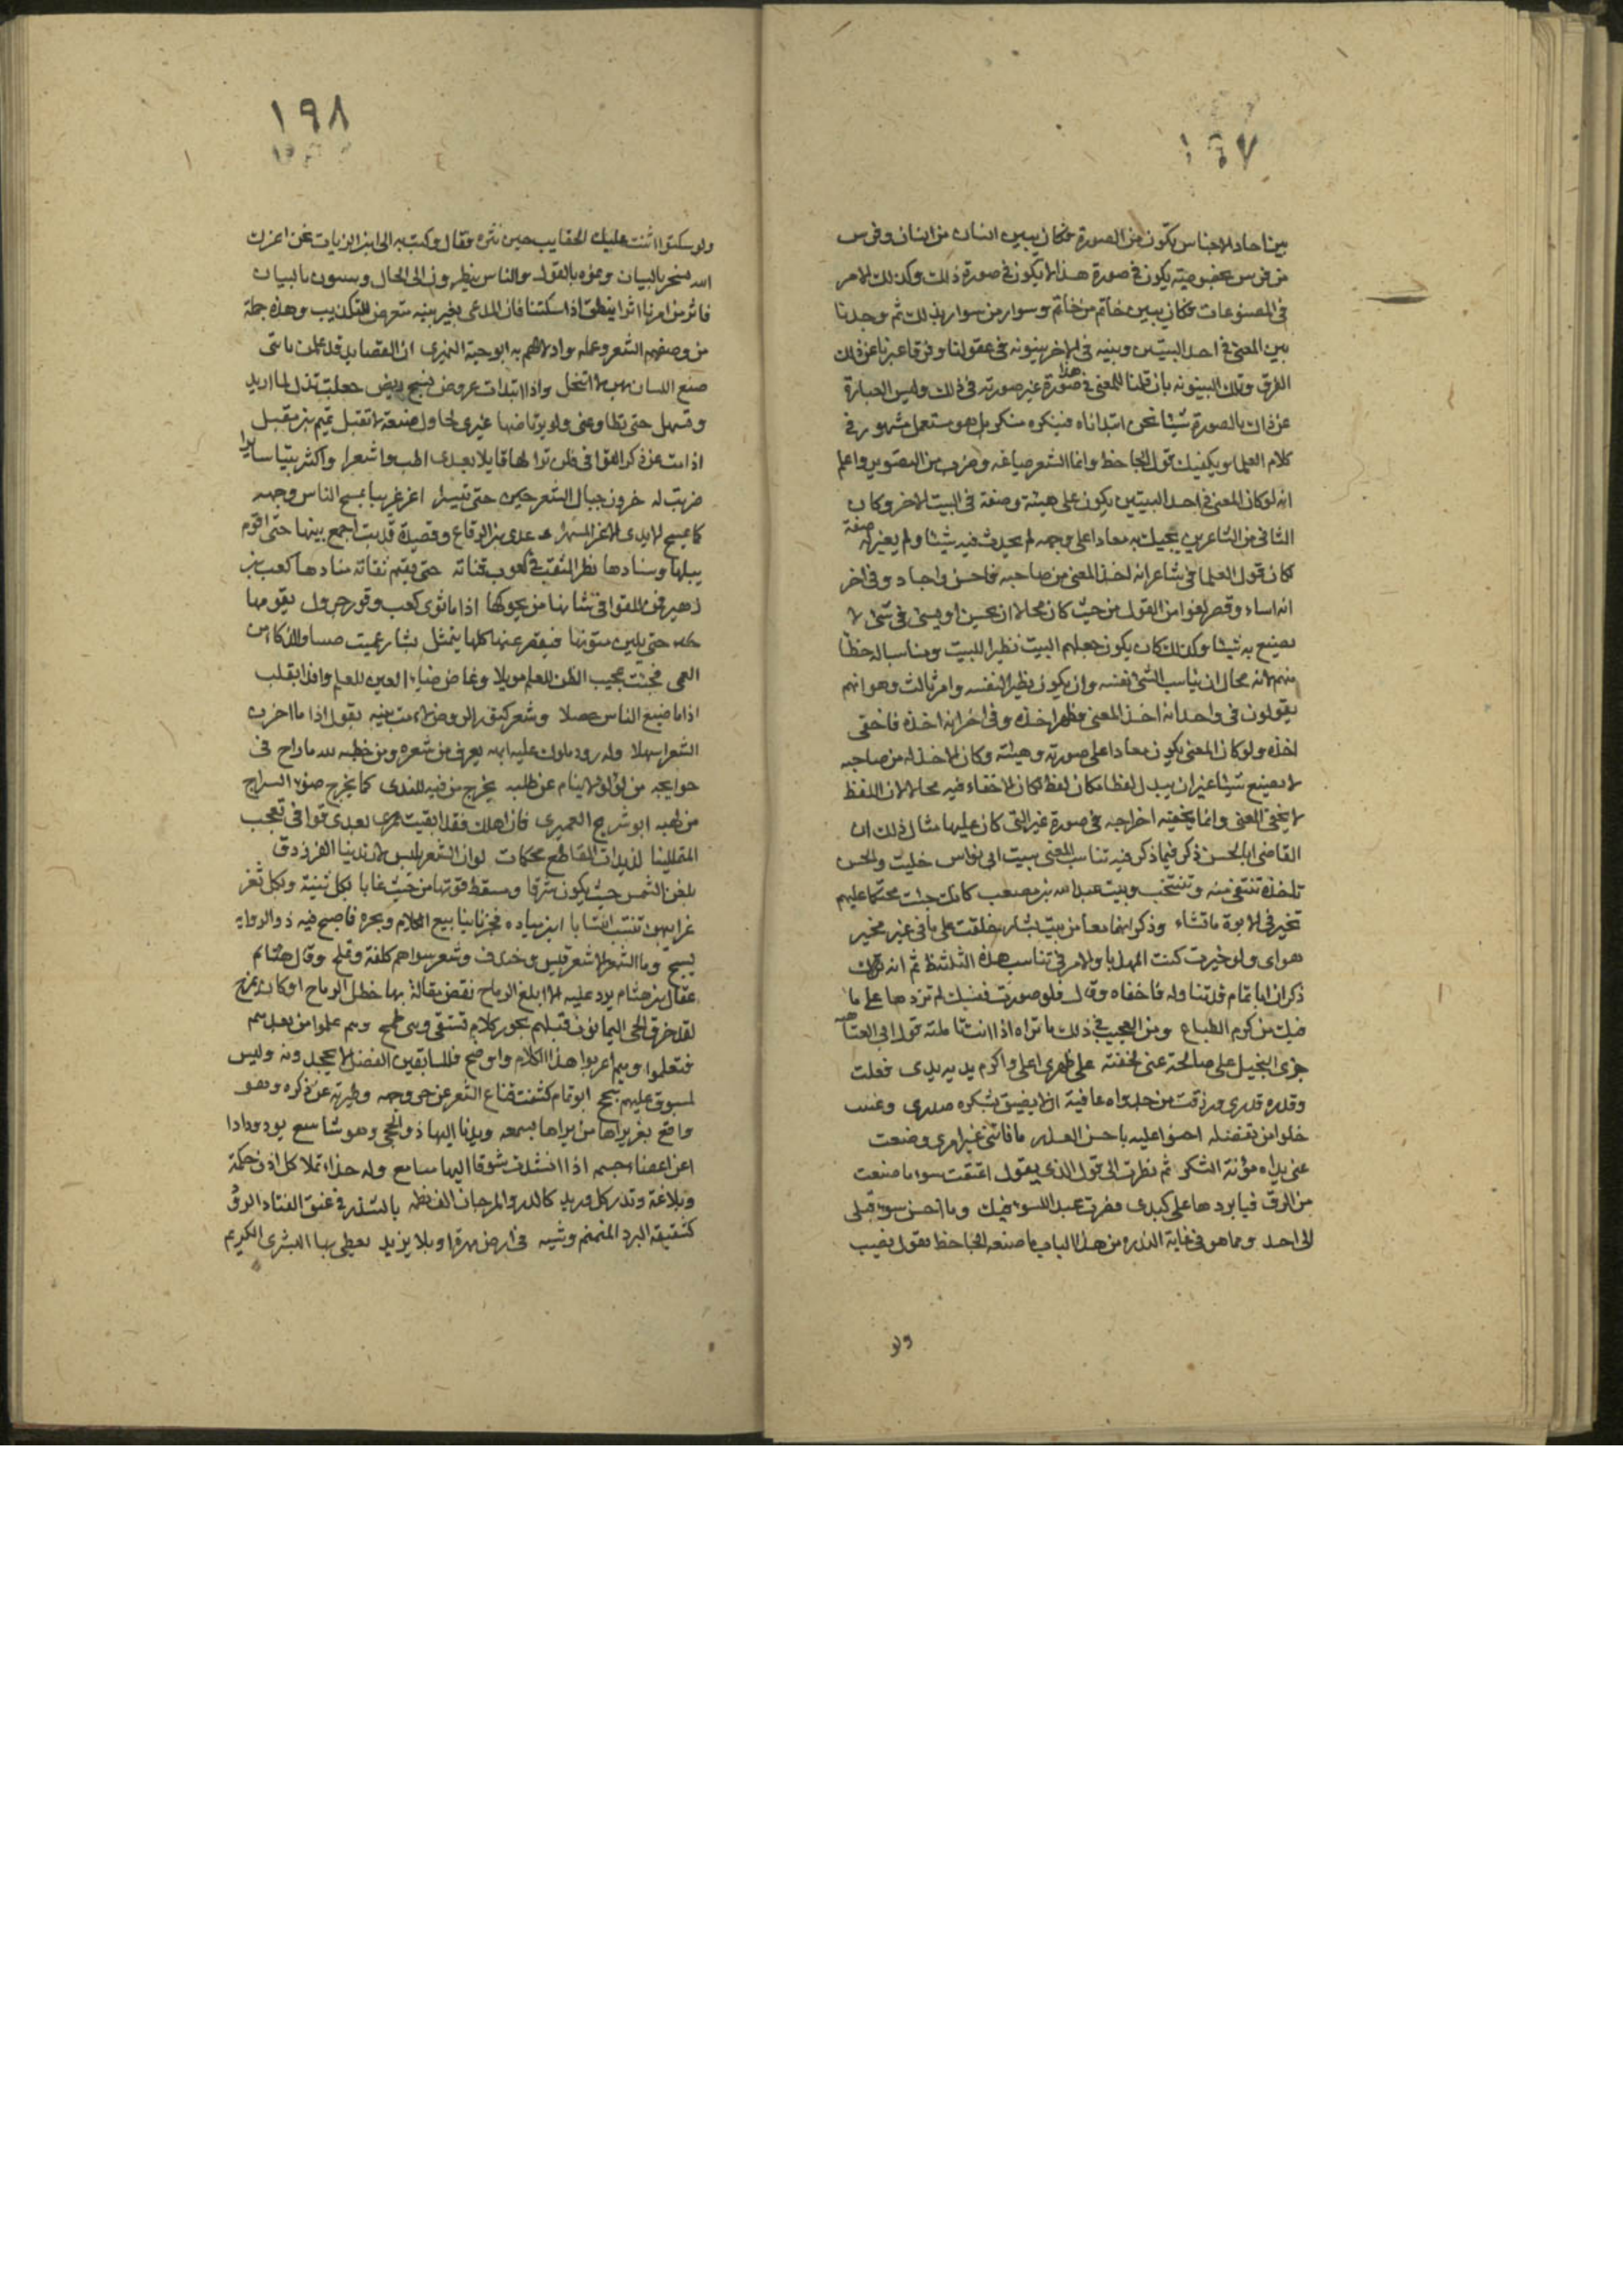 ١٩٧
بين احاد الاجناس يكون من الصورة فكان بين انسان من انسان وفرس
من فرس بخصوصية يكون في صورة هذا لا يكون في صورة ذلك وكذلك الامر
في المصنوعات فكان بين خاتم من خاتم وسوار من سوار بذلك ثم وجدنا
بين المعنى في احد البيتين وبينه في الاخر بينونه في عقولنا وفرقا عبرنا عن ذلك
الفرق وتلك البينونه بان قلنا للمعنى في هذا صورة غير صورته في ذلك وليس العبارة
عن ذلك بالصورة شيئا نحن ابتداناه فينكره منكر بل هو مستعمل مشهور في
كلام العلما ويكفيك قول الجاحظ وانما الشعر صياغه وضرب من التصوير واعلم
انه لو كان المعنى في احد البيتين يكون على هيئته وصفته في البيت الاخر وكان
التالي من الشاعرين يجيك به معادا على وجهه لم يحدث فيه شيئا ولم يغير له صفة
لكان قول العلما في شاعر انه اخذ المعنى من صاحبه فاحسن واجاد وفي اخر
انه اساء وقصر لغوا من القول من حيث كان محالا ان يحسن او يسئ في شئ لا
يصنع به شيئا وكذلك كان يكون جعلهم البيت نظيرا للبيت ومناسبا له خطأ
منهم لانه محال ان يناسب الشئ نفسه وان يكون نظير النفسه وامر ثالث وهو انهم
يقولون في واحد انه اخذ المعنى فظهر اخذه وفي اخر انه اخذه فاخفى
اخذه ولو كان المعنى يكون معادا على صورته وهيئته وكان الاخذ له من صاحبه
لا يصنع شيئا غير ان يبدل لفظا مكان لفظ لكان الاخفاء فيه محالا لان اللفظ
لا يخفي المعنى وانما يخفيه اخراجه في صورة غير التي كان عليها مثال ذلك ان
القاضي ابا الحسن ذكر فيما ذكر فيه تناسب المعنى بيت ابي نواس خليت والحسن
تاخذه تنتقي منه وتنتخب وبيت عبد الله بن مصعب كانك جئت محتكما عليهم
تخير في الابوة ما تشاء وذكر انهما معا من بيت بشار خلقت على ما في غير مخير
هواي ولو خيرت كنت المهذبا والامر في تناسب هذه الثلثة ظ ثم انه
ذكر ان ابا تمام قد تناوله فاخفاه وقال فلو صورت نفسك لم تزدها على ما
فيك من كرم الطباع ومن العجيب في ذلك ما تراه اذا انت تاملته قول ابي العتاهيه
جزى البخيل على صالحة عني لخفته على ظهري اعلى واكرم يديه يدي فعلت
وقدره قدري ورزقت من جدواه عافية ان لا يضيق بشكره صدري وغنيت
خلوا من تفضله احنوا عليه باحسن العذر ما فاتني خير امرئ وضعت
عني يداه مؤنة الشكر ثم نظرت الى قول الذي يقول اعتقت سوا ما صنعت
من الرق فيا بردها على كبدي فصرت عبد السوء فيك وما احسن سوء قبلي
الى احد ومما هو في غاية الندره من هذا الباب ما صنعه الجاحظ بقول نصيب
ولو
١٩٨
ولو سكتوا اثنت عليك الحقايب حين نثره فقال وكتب به الى ابن الزيات نحن اعزك
الله نسحر بالبيان ونموه بالقول والناس ينظرون الى الحال ويقضون بالعيان
فاثر من امرنا اثرا ينطق اذا سكتنا فان المدعي بغير بينه متعرض للتكذيب وهذه جملة
من وصفهم الشعر وعمله وادلالهم به ابو حية النميري ان القصايد قد علمن باني
صنع اللسان بهن لا اتنحل واذا ابتدات عروض نسج ريض جعلت تذل لما اريد
وتسهل حتى تطاوعني ولو يرتاضها غيري لحاول صعبة لا تقبل تميم بن مقبل
اذا مت عن ذكر القوافي فلن ترى لها قايلا بعدي اطب واشعرا واكثر بيتا سايرا
ضربت له حزون جبال الشعر حتى تيسرا اغر غريبا يمسح الناس وجهه
كما تمسح الايدي الاغر المشهرا عدي بن الرقاع وقصيدة قد بت اجمع بينها حتى اقوم
ميلها وسنادها نظر المثقف في كعوب قناته حتى يقيم ثقافه منادها كعب بن
زهير فمن للقوافي شانها من يحوكها اذا ما ثوى كعب وفوز جرول يقومها
حتى تلين متونها فيقصر عنها كلها يتمثل بشار عميت جنينا والذكاء من
العمى فجئت عجيب الظن للعلم مويلا وغاض ضياء العين للعلم رافدا بقلب
اذا ما ضيع الناس حصلا وشعر كنور الروض لامت بينه بقول اذا ما احزن
الشعر اسهلا وله زور ملوك عليه ابهة يعرف من شعره ومن خطبه لله ما راح في
جوانحه من لؤلؤ لا ينام عن طلبه يخرج من فيه للندى كما يخرج ضوء السراج
من لهبه ابو شريح العميري فان اهلك فقد ابقيت بعدي قوافي تعجب
المتمثلينا لذيذات المقاطع محكمات لو ان الشعر يلبس لارتدينا الفرزدق
بلغن الشمس حيث تكون شرقا ومسقط قرنها من حيث غابا بكل ثنية وبكل ثغر
غرايبهن تنتسب انتسابا ابن مياده فجرنا ينابيع الكلام وبحره فاصبح فيه ذو الروايه
يسبح وما الشعر الا شعر قيس وخندف وشعر سواهم كلفة وتملح وقال
عقال بن هشام يرد عليه الا ابلغ الرماح نقض مقالة بها خطل الرماح او كان يمزح
لقد خرق الحي اليمانون قبلهم بحور كلام تستقى وهي طفح وهم علموا من بعدهم
فتعلموا وهم اعربوا هذا الكلام واوضحوا فللسابقين الفضل لا يجحدونه وليس
لمسبوق عليهم تبجح ابو تمام كشفت قناع الشعر عن حر وجهه وطيرته عن وكره وهو
واقع بغر يراها من يراها بسمعه ويدنو اليها ذو الحجى وهو شاسع يود ودادا
ان اعضاء جسمه اذا انشدت شوقا اليها مسامع وله حذاء تملا كل اذن حكمة
وبلاغة وتدر كل وريد كالدر والمرجان الف نظمه بالشذر في عنق الفتاة الرود
كشقيقة البرد المنمنم وشيه في ارض مهرة او بلاد تزيد يعطى بها البشرى الكريم